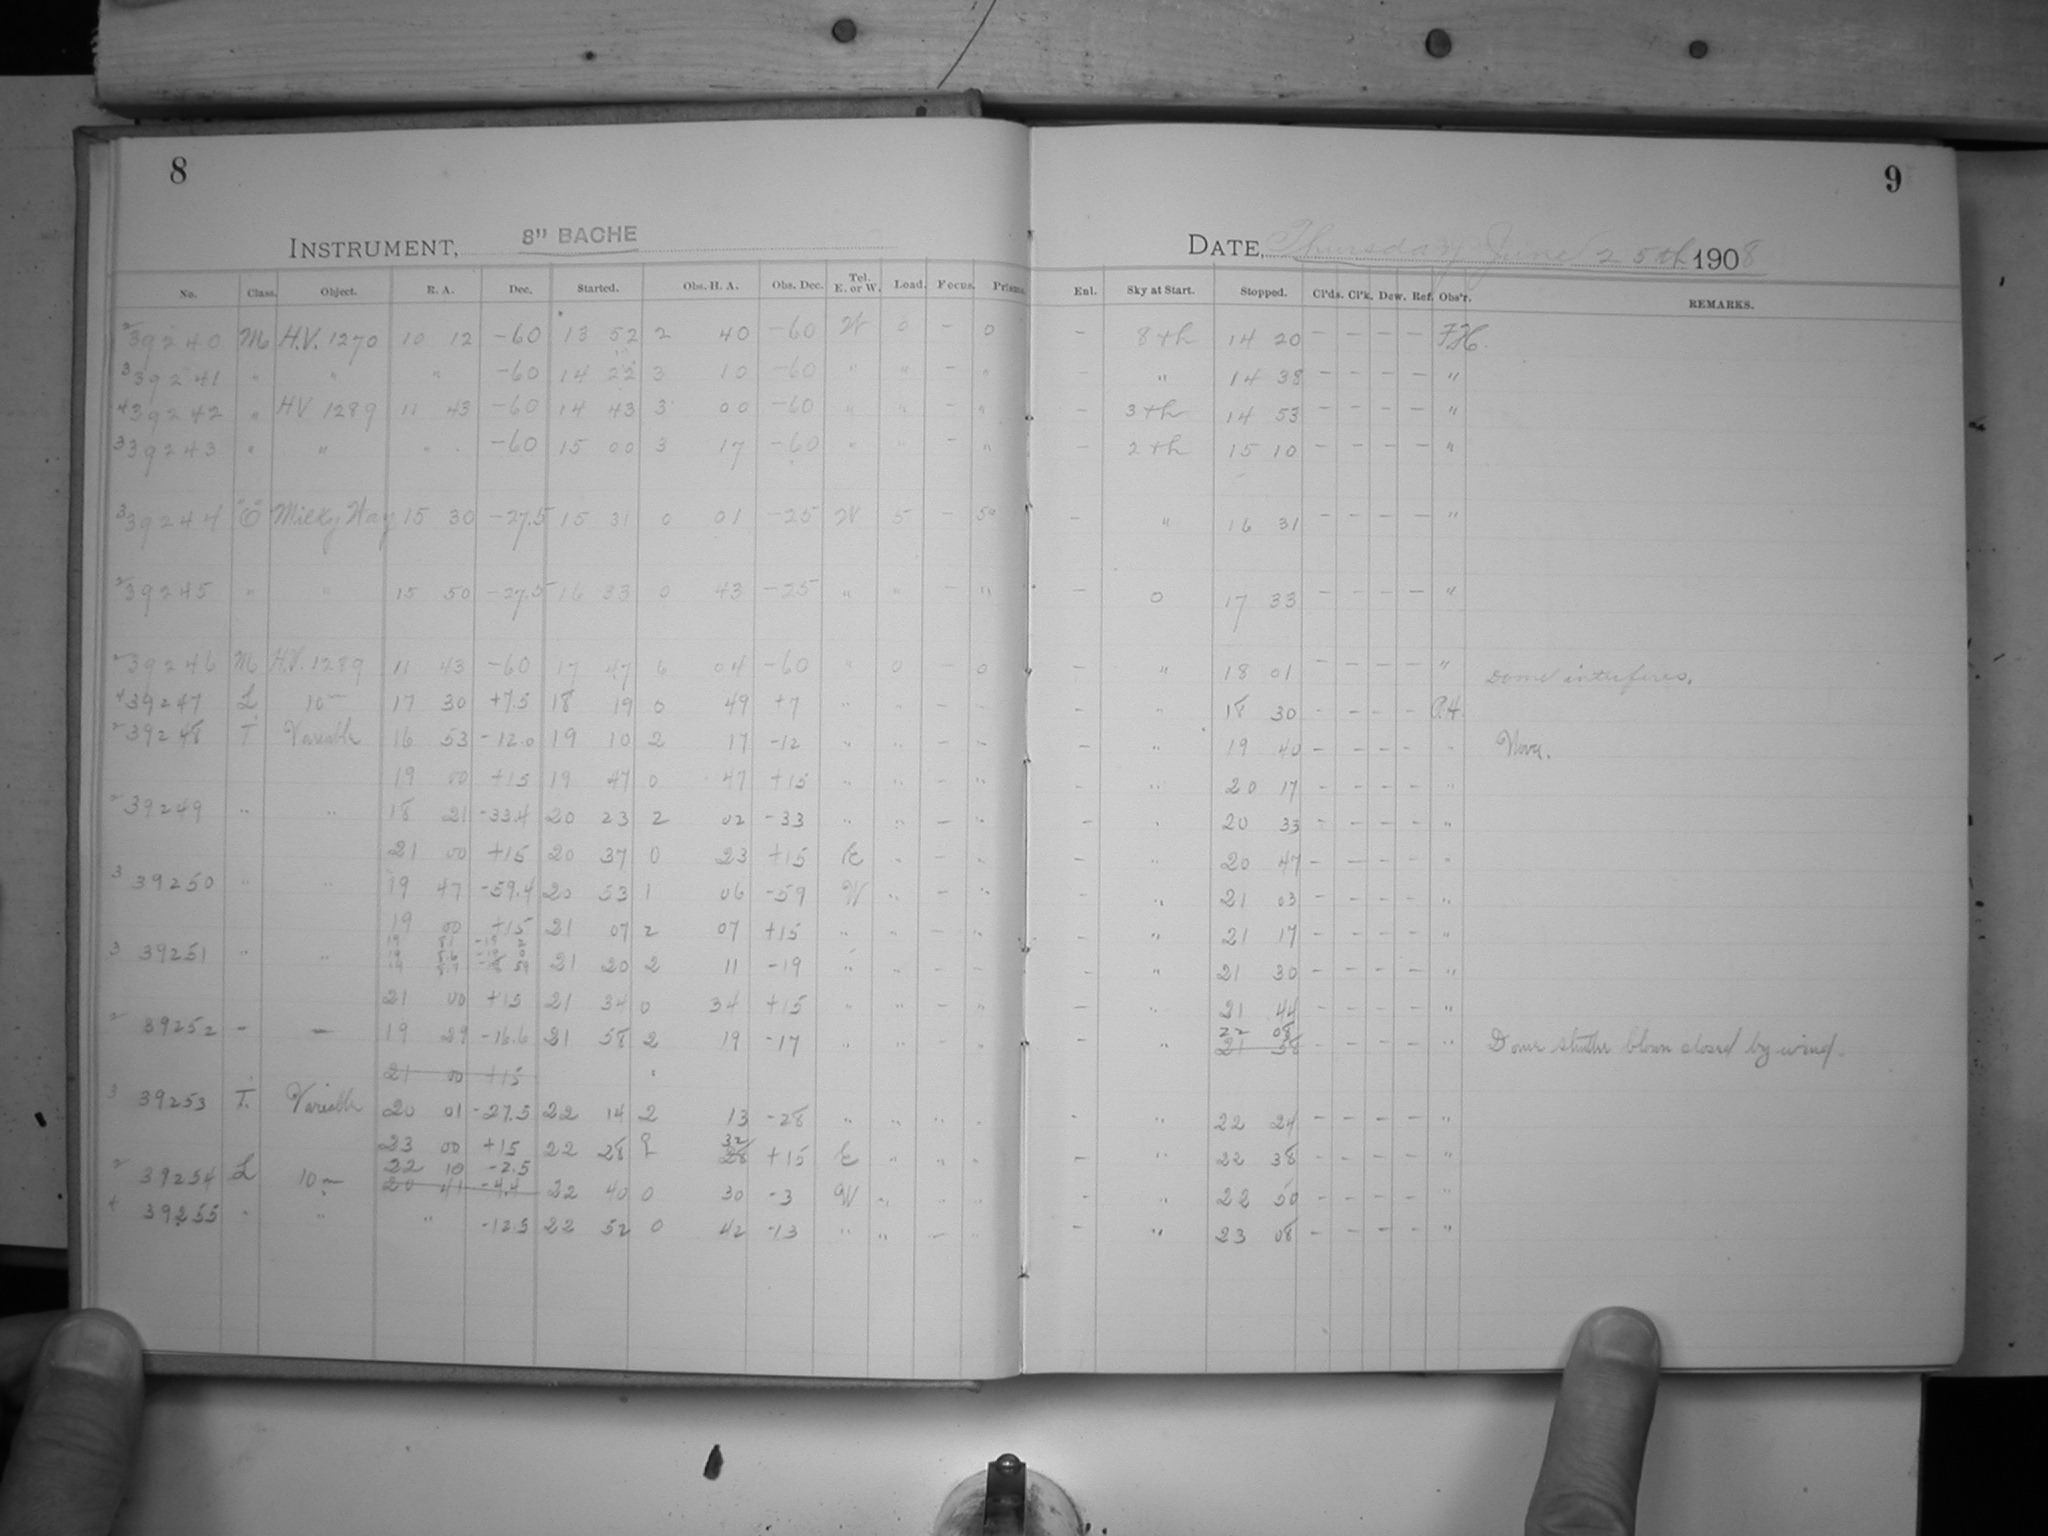 8 9
INSTRUMENT, 8" BACHE DATE, Thursday June 25th 1908
No. Class. Object. R. A. Dec. Started. Obs. H. A. Obs. Dec. Tel. E. or W. Load. Focus. Prisms. Enl. Sky at Start. Stopped. Cl'ds. Cl'k. Dew. Ref. Obs'r. REMARKS.
2 39240 M H.V. 1270 10 12 -60 13 52 2 40 -60 W 0 - 0 - 8th 14 20 - - - - F.H.
3 39241 " " " -60 14 22 3 10 -60 " " - " - " 14 38 - - - - "
4 39242 " HV 1289 11 43 -60 14 43 3 00 -60 " " - " - 3th 14 53 - - - - "
3 39243 " " " -60 15 00 3 17 -60 " " - " - 2th 15 10 - - - - "
3 39244 "O" Milky Way 15 30 -27.5 15 31 0 01 -25 W 5 - 5a - " 16 31 - - - - "
2 39245 " " 15 50 -27.5 16 33 0 43 -25 " " - " - 0 17 33 - - - - "
2 39246 M H.V. 1289 11 43 -60 17 47 6 04 -60 " 0 - 0 - " 18 01 - - - - " Dome interferes.
4 39247 L 10m 17 30 +7.5 18 19 0 49 +7 " " - " - " 18 30 - - - - P.H.
2 39248 T Variable 16 53 -12.0 19 10 2 17 -12 " " - " - " 19 40 - - - - " Nova.
19 00 +15 19 47 0 47 +15 " " - " - " 20 17 - - - - "
2 39249 " " 18 21 -33.4 20 23 2 02 -33 " " - " - " 20 33 - - - - "
21 00 +15 20 37 0 23 +15 E " - " - " 20 47 - - - - "
3 39250 " " 19 47 -59.4 20 53 1 06 -59 W " - " - " 21 03 - - - - "
19 00 +15 21 07 2 07 +15 " " - " - " 21 17 - - - - "
3 39251 " " 21 20 2 11 -19 " " - " - " 21 30 - - - - "
21 00 +15 21 34 0 34 +15 " " - " - " 21 44 - - - - "
22 08
2 39252 - - 19 29 -16.6 21 58 2 19 -17 " " - " - " 21 58 - - - - " Dome shutter blown closed by wind.
21 00 +15
3 39253 T. Variable 20 01 -27.5 22 14 2 13 -28 " " " " - " 22 24 - - - - "
32
23 00 +15 22 28 28 +15 E " - " - " 22 38 - - - - "
22 10 -2.5
2 39254 L 10m 20 41 -4.4 22 40 0 30 -3 W " " " - " 22 50 - - - - "
4 39255 " " " -12.5 22 52 0 42 -13 " " - " - " 23 08 - - - - "